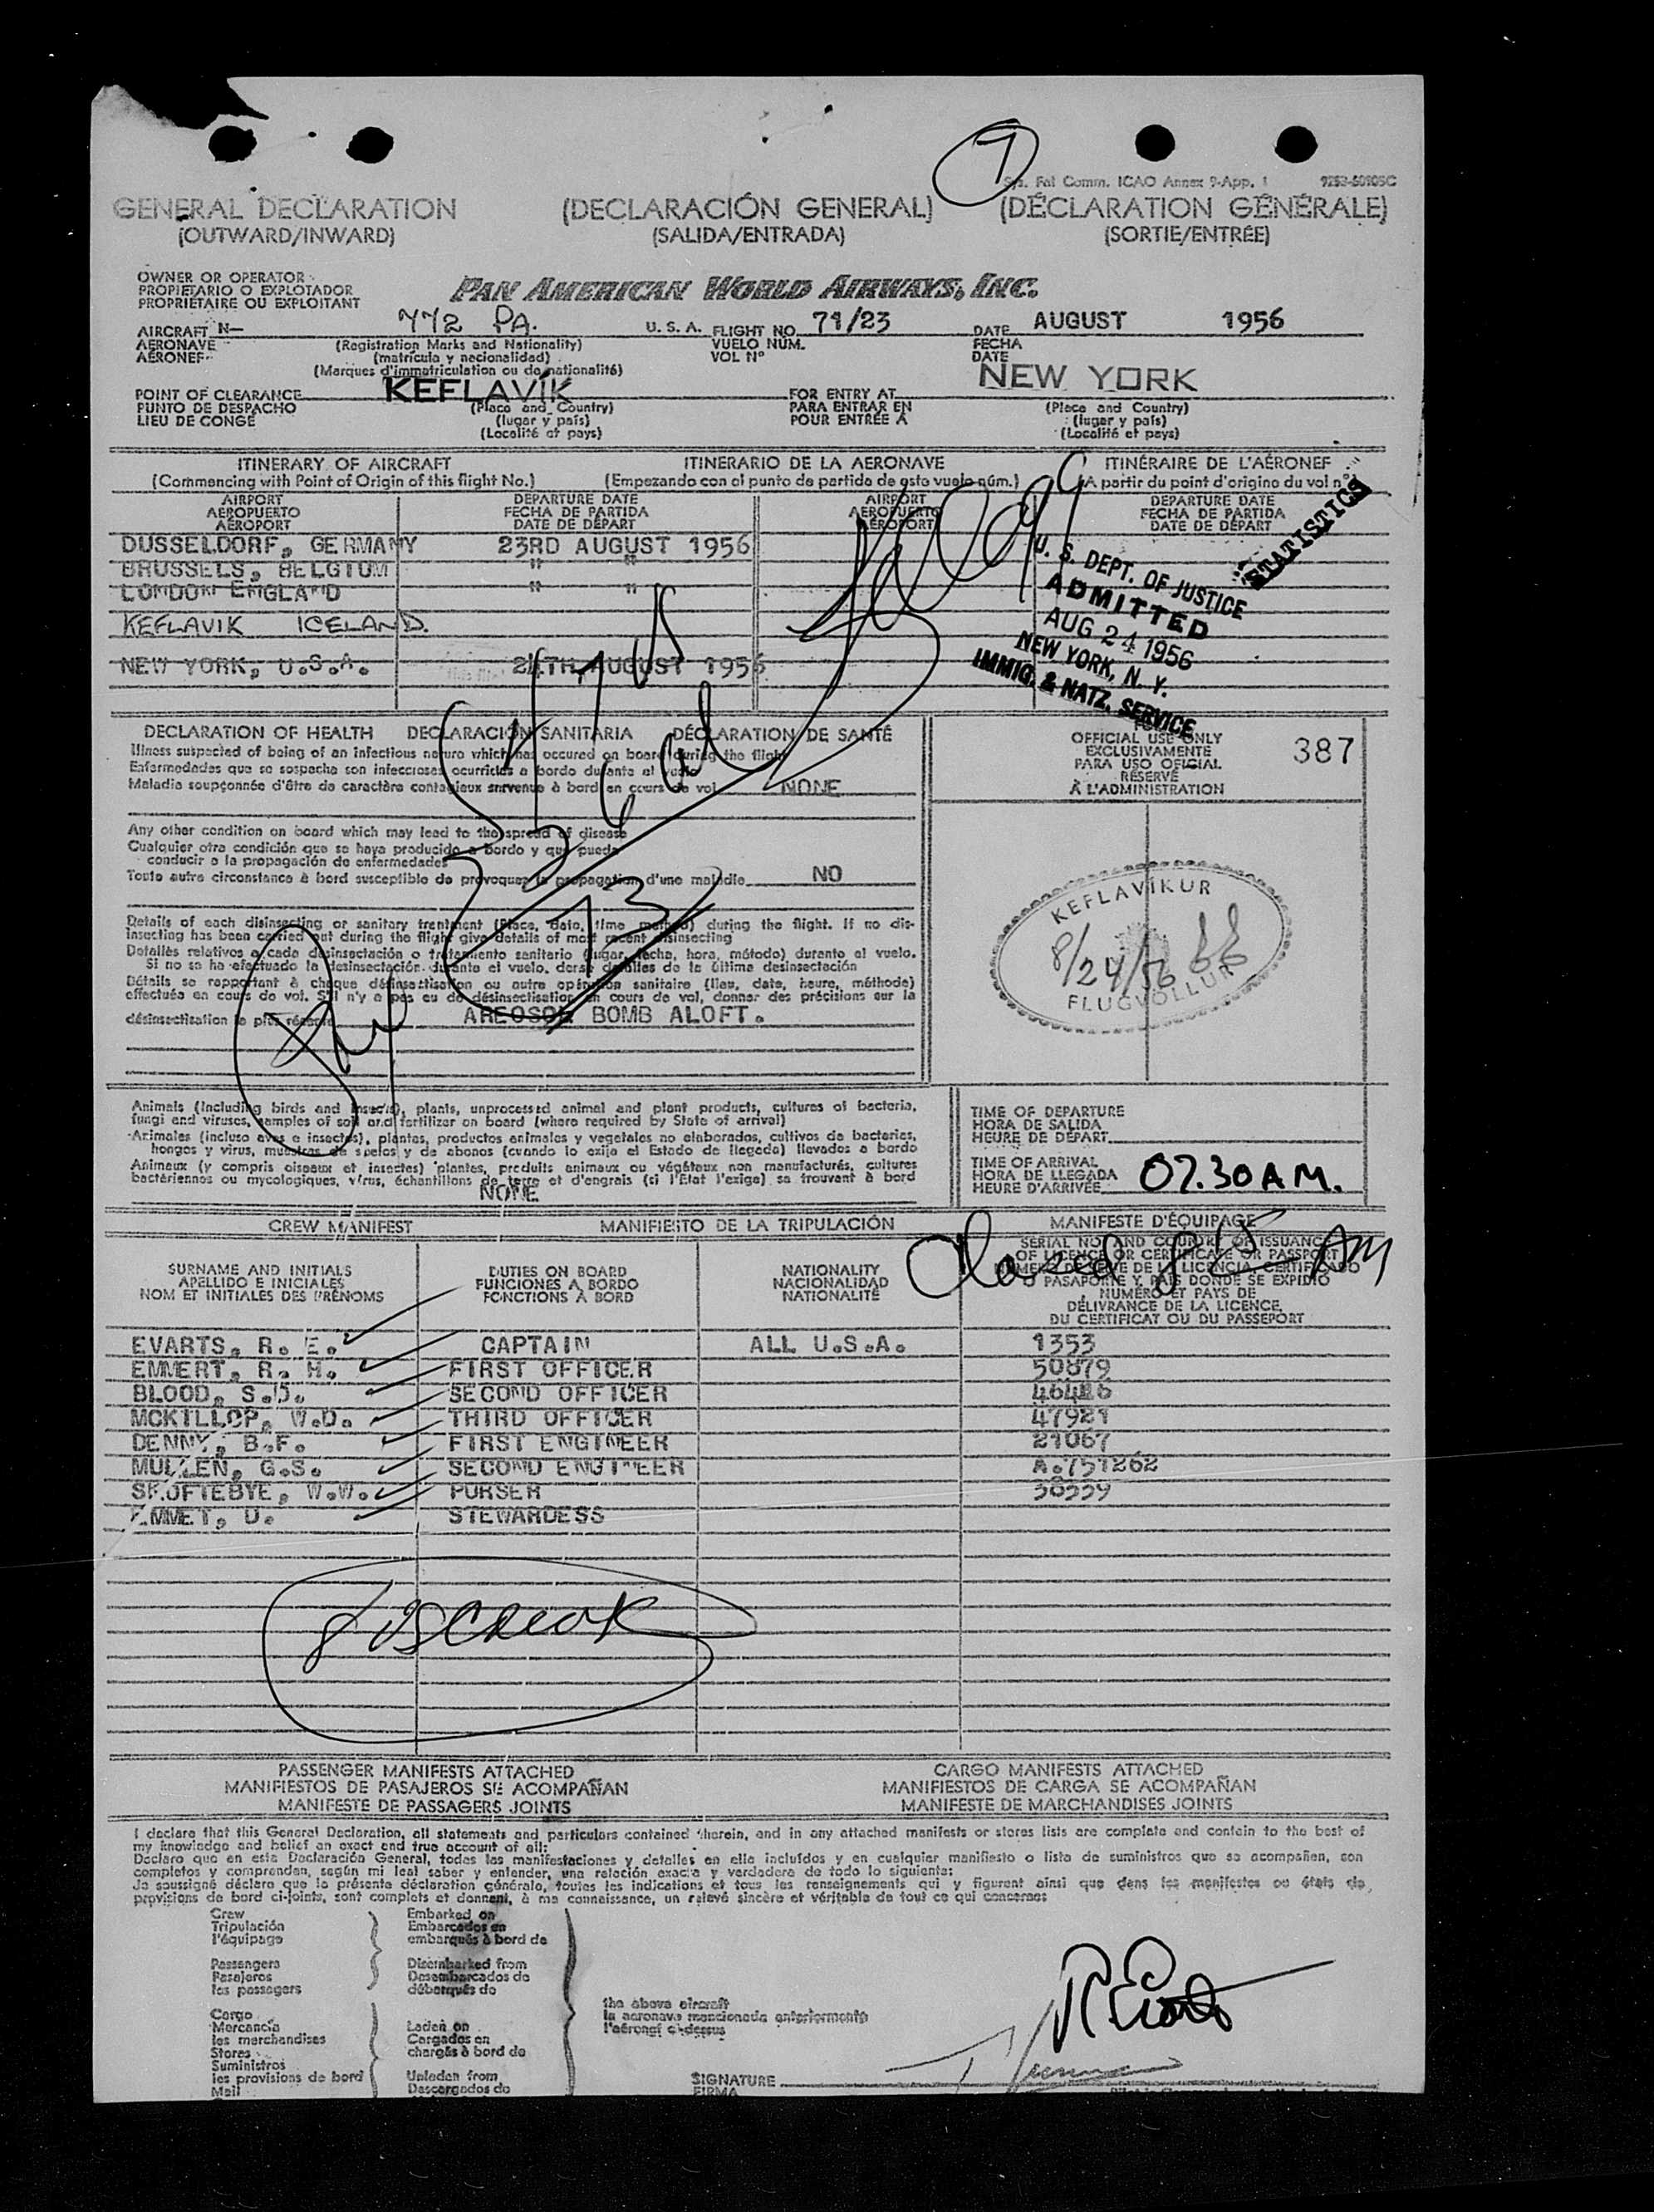 7
Sys. Fal Comm. ICAO Annex 9-App. 1
GENERAL DECLARATION (DECLARACIÓN GENERAL) (DÉCLARATION GÉNÉRALE)
(OUTWARD/INWARD) (SALIDA/ENTRADA) (SORTIE/ENTRÉE)
OWNER OR OPERATOR
PROPIETARIO O EXPLOTADOR PAN AMERICAN WORLD AIRWAYS, INC.
PROPRIÉTAIRE OU EXPLOITANT
AIRCRAFT N— 772 PA. U. S. A. FLIGHT NO. 71/23 DATE AUGUST 1956
AERONAVE (Registration Marks and Nationality) VUELO NÚM. FECHA
AÉRONEF (matrícula y nacionalidad) VOL Nº DATE
(Marques d'immatriculation ou de nationalité)
POINT OF CLEARANCE KEFLAVÍK FOR ENTRY AT NEW YORK
PUNTO DE DESPACHO (Place and Country) PARA ENTRAR EN (Place and Country)
LIEU DE CONGÉ (lugar y país) POUR ENTRÉE À (lugar y país)
(Localité et pays) (Localité et pays)
ITINERARY OF AIRCRAFT ITINERARIO DE LA AERONAVE ITINÉRAIRE DE L'AÉRONEF
(Commencing with Point of Origin of this flight No.) (Empezando con el punto de partida de este vuelo núm.) (A partir du point d'origine du vol nº)
AIRPORT DEPARTURE DATE AIRPORT DEPARTURE DATE
AEROPUERTO FECHA DE PARTIDA AEROPUERTO FECHA DE PARTIDA
AÉROPORT DATE DE DÉPART AÉROPORT DATE DE DÉPART
DUSSELDORF, GERMANY 23RD AUGUST 1956
BRUSSELS, BELGIUM " "
LONDON ENGLAND " "
KEFLAVIK ICELAND.
NEW YORK, U.S.A. 24TH AUGUST 1956
STATISTICS
U. S. DEPT. OF JUSTICE
ADMITTED
AUG 24 1956
NEW YORK, N. Y.
IMMIG. & NATZ. SERVICE
DECLARATION OF HEALTH DECLARACIÓN SANITARIA DÉCLARATION DE SANTÉ
Illness suspected of being of an infectious nature which has occured on board during the flight
Enfermedades que se sospecha son infecciosas ocurridas a bordo durante el vuelo
Maladie soupçonnée d'être de caractère contagieux survenue à bord en cours de vol NONE
Any other condition on board which may lead to the spread of disease
Cualquier otra condición que se haya producido a bordo y que pueda
conducir a la propagación de enfermedades
Toute autre circonstance à bord susceptible de provoquer la propagation d'une maladie NO
Details of each disinsecting or sanitary treatment (Place, date, time method) during the flight. If no dis-
insecting has been carried out during the flight give details of most recent disinsecting
Detalles relativos a cada desinsectación o tratamiento sanitario (lugar, fecha, hora, método) durante el vuelo.
Si no se ha efectuado la desinsectación durante el vuelo, darse detalles de la última desinsectación
Détails se rapportant à chaque désinsectisation ou autre opération sanitaire (lieu, date, heure, méthode)
effectués en cours de vol. S'il n'y a pas eu de désinsectisation en cours de vol, donner des précisions sur la
désinsectisation la plus récente AREOSOL BOMB ALOFT.
OFFICIAL USE ONLY 387
EXCLUSIVAMENTE
PARA USO OFICIAL
RÉSERVÉ
À L'ADMINISTRATION
KEFLAVÍKUR
8/24/56
FLUGVÖLLUR
Animals (including birds and insects), plants, unprocessed animal and plant products, cultures of bacteria,
fungi and viruses, samples of soil and fertilizer on board (where required by State of arrival)
Animales (incluso aves e insectos), plantas, productos animales y vegetales no elaborados, cultivos de bacterias,
hongos y virus, muestras de suelos y de abonos (cuando lo exija el Estado de llegada) llevados a bordo
Animaux (y compris oiseaux et insectes) plantes, produits animaux ou végétaux non manufacturés, cultures
bactériennes ou mycologiques, virus, échantillons de terre et d'engrais (si l'État l'exige) se trouvant à bord
NONE
TIME OF DEPARTURE
HORA DE SALIDA
HEURE DE DÉPART
TIME OF ARRIVAL
HORA DE LLEGADA 07.30 A.M.
HEURE D'ARRIVÉE
CREW MANIFEST MANIFIESTO DE LA TRIPULACIÓN MANIFESTE D'ÉQUIPAGE
Closed 8 15 AM
SURNAME AND INITIALS DUTIES ON BOARD NATIONALITY SERIAL NO. AND COUNTRY OF ISSUANCE
APELLIDO E INICIALES FUNCIONES A BORDO NACIONALIDAD OF LICENCE OR CERTIFICATE OR PASSPORT
NOM ET INITIALES DES PRÉNOMS FONCTIONS À BORD NATIONALITÉ NÚMERO DE LA LICENCIA, CERTIFICADO
O PASAPORTE Y PAÍS DONDE SE EXPIDIÓ
NUMÉRO ET PAYS DE
DÉLIVRANCE DE LA LICENCE,
DU CERTIFICAT OU DU PASSEPORT
EVARTS, R. E. CAPTAIN ALL U.S.A. 1353
EMMERT, R. H. FIRST OFFICER 50879
BLOOD, S.D. SECOND OFFICER
MCKILLOP, W.D. THIRD OFFICER 47921
DENNY, B.F. FIRST ENGINEER 21067
MULLEN, G.S. SECOND ENGINEER A.751262
SKOFTEBYE, W.W. PURSER 38559
EMMET, D. STEWARDESS
8 USC Rec OK
PASSENGER MANIFESTS ATTACHED CARGO MANIFESTS ATTACHED
MANIFIESTOS DE PASAJEROS SE ACOMPAÑAN MANIFIESTOS DE CARGA SE ACOMPAÑAN
MANIFESTE DE PASSAGERS JOINTS MANIFESTE DE MARCHANDISES JOINTS
I declare that this General Declaration, all statements and particulars contained therein, and in any attached manifests or stores lists are complete and contain to the best of
my knowledge and belief an exact and true account of all:
Declaro que en esta Declaración General, todas las manifestaciones y detalles en ella incluídos y en cualquier manifiesto o lista de suministros que se acompañen, son
completos y comprenden, según mi leal saber y entender, una relación exacta y verdadera de todo lo siguiente:
Je soussigné déclare que la présente déclaration générale, toutes les indications et tous les renseignements qui y figurent ainsi que dans les manifestes ou états de
provisions de bord ci-joints, sont complets et donnent, à ma connaissance, un relevé sincère et véritable de tout ce qui concerne:
Crew Embarked on
Tripulación Embarcados en
l'équipage embarqués à bord de
Passengers Disembarked from
Pasajeros Desembarcados de
les passagers débarqués de
the above aircraft
la aeronave mencionada anteriormente
l'aéronef ci-dessus
Cargo
Mercancía Laden on
les marchandises Cargados en
Stores chargés à bord de
Suministros
les provisions de bord Unladen from
Mail Descargados de
SIGNATURE R E Evarts
FIRMA